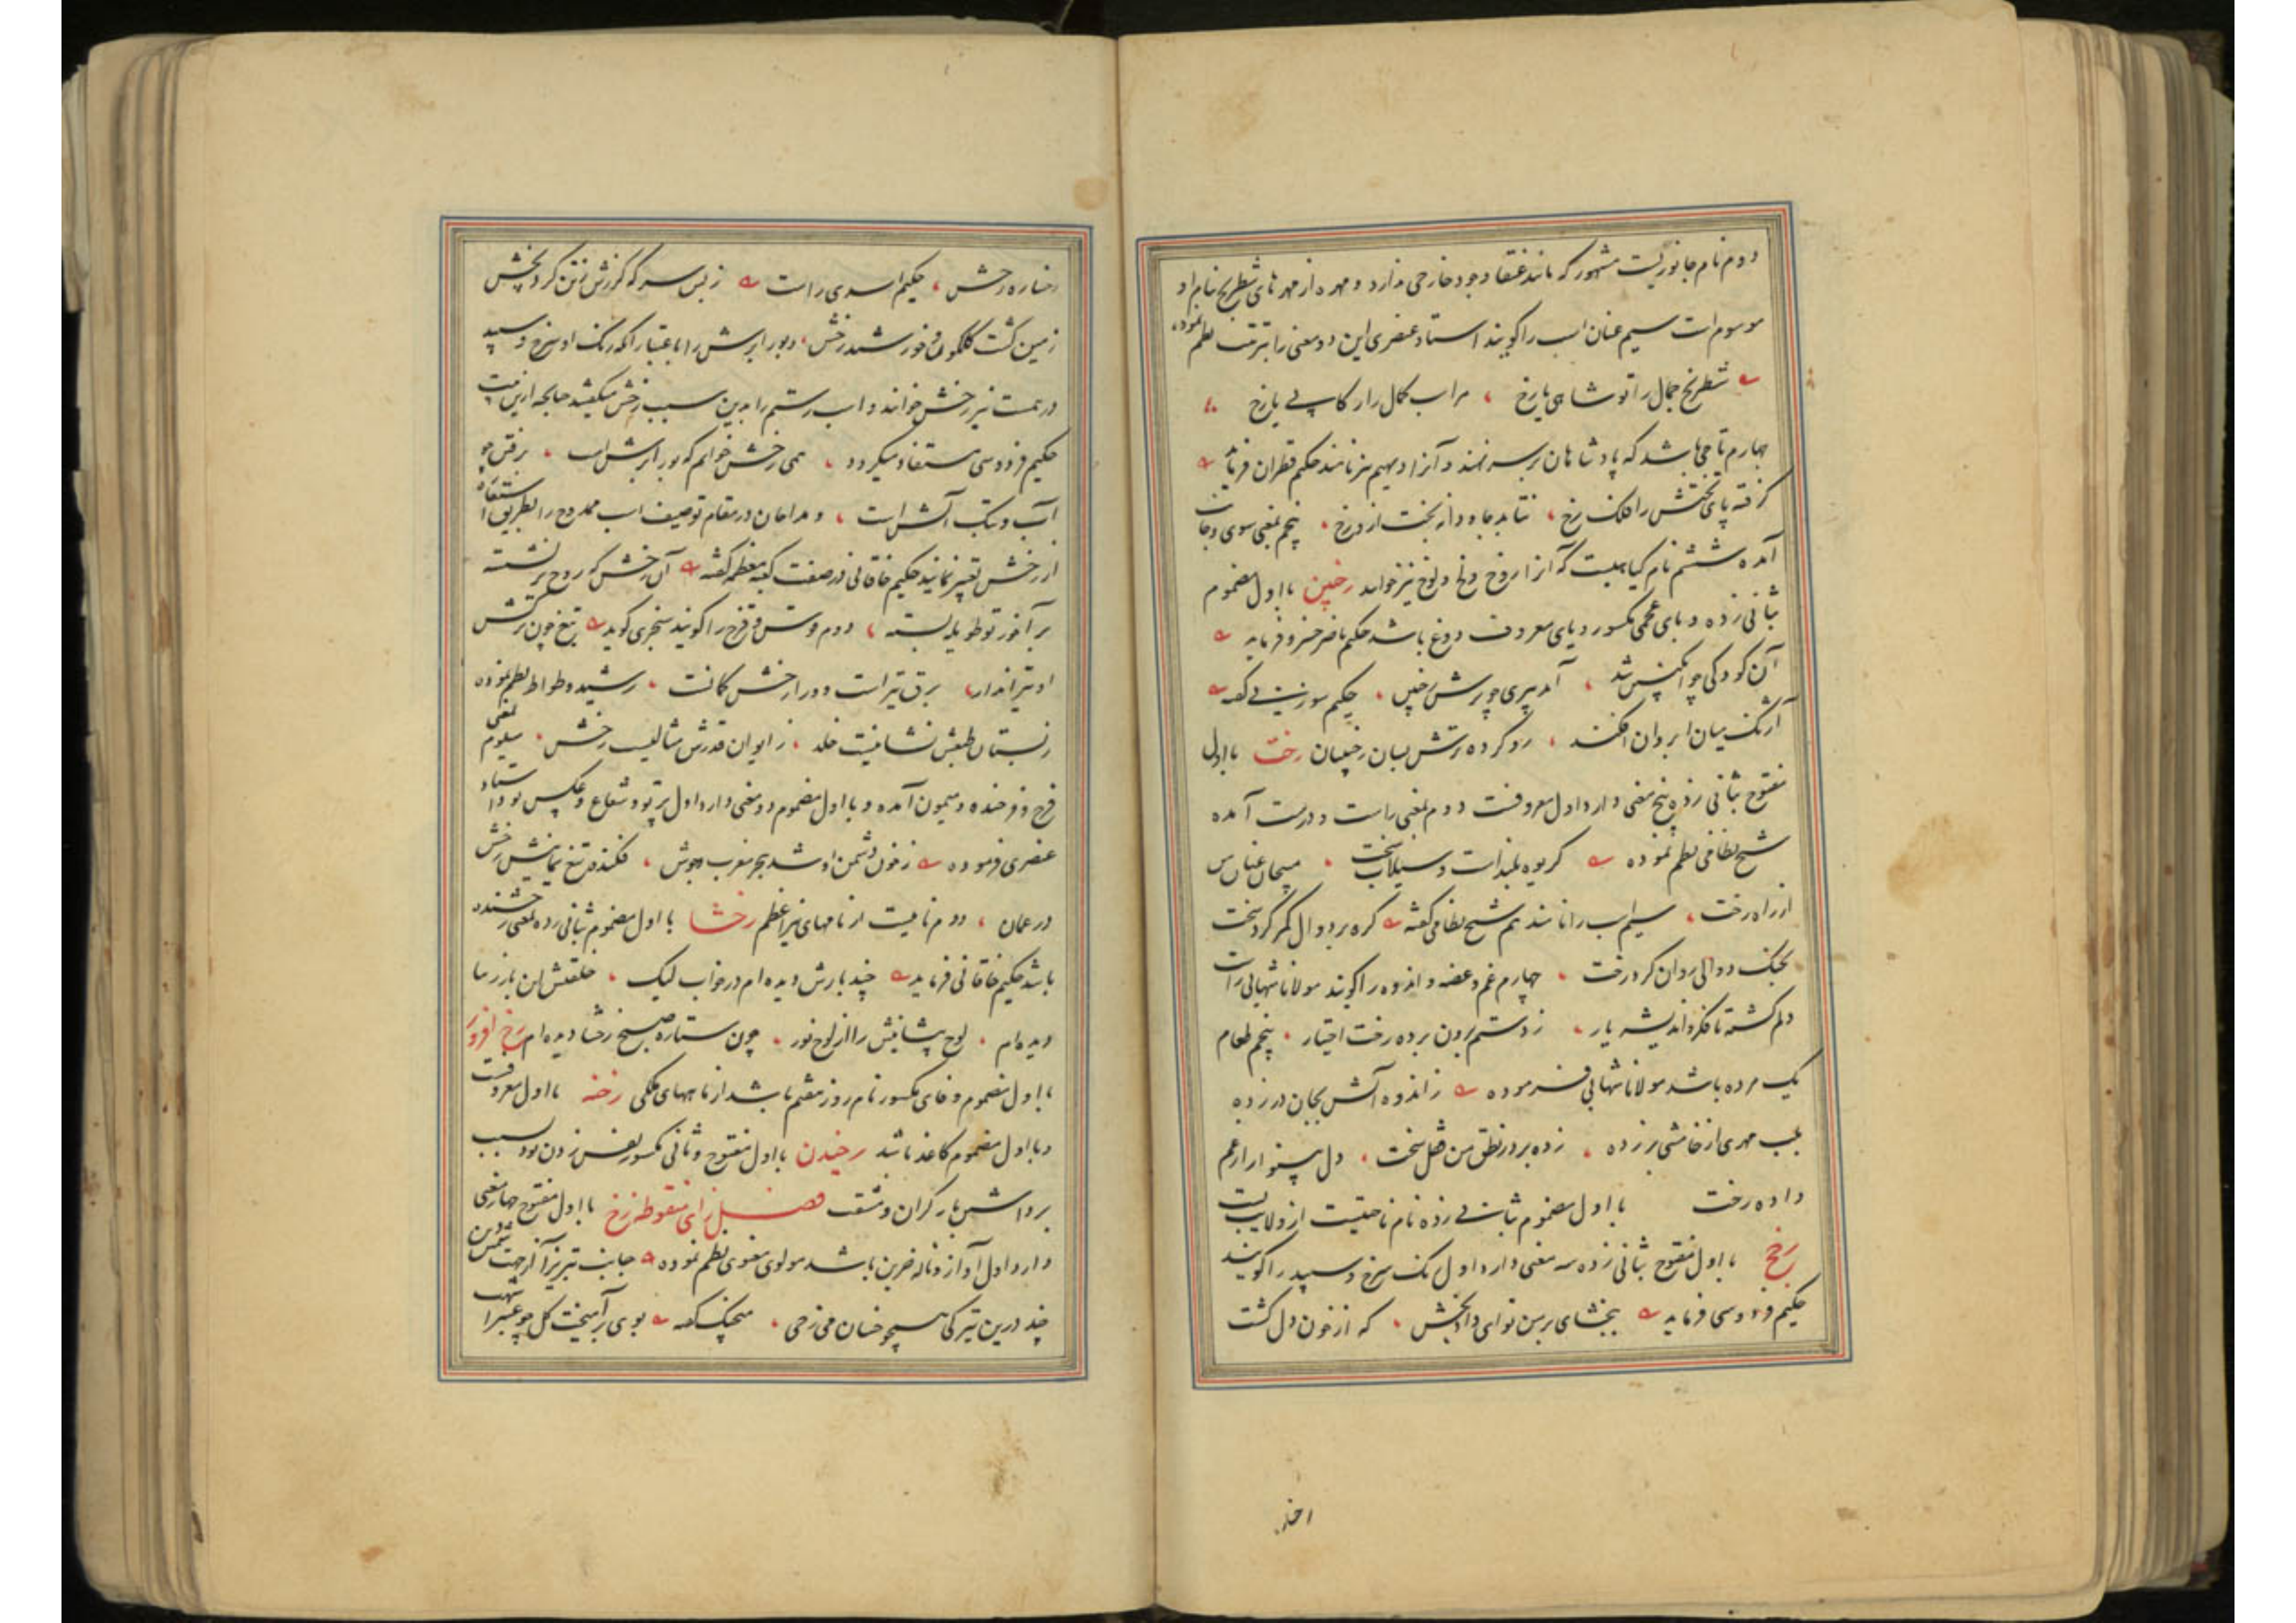 دوم نام جانوریست مشهور که مانند عنقا وجود خارجی ندارد و مهره از مهرهای شطرنج بنام او
موسوم است سیم عنان اسب را گویند استاد عنصری این دو معنی را بترتیب نظم نموده
شطرنج جمال را تو شاهی یا رخ مر اسب کمال را رکابی یا رخ
چهارم تاجی باشد که پادشاهان بر سر نهند و آنرا دیهیم نیز نامند حکیم قطران فرماید
گرفته پای تختش را فلک رخ نتابد جاه و از بخت از و رخ پنجم بمعنی سوی و جانب
آمده ششم نام گیاهیست که آنرا روخ و لخ و لوخ نیز خوانند رخپین با اول مضموم
بثانی زده و بای عجمی مکسور و یای معروف دوغ باشد حکیم ناصر خسرو فرماید
آن کودکی چو انگبین شد آمد پیری چو ترش رخپین حکیم سوزنی گفته
آژنگ میان ابروان افکند رو کرده ترش بسان رخپیان رخت با اول
مفتوح بثانی زده پنج معنی دارد اول معروفست دوم بمعنی راست و درست آمده
شیخ نظامی نظم نموده گریوه بلندست و سیلاب سخت مپیچان عنان من
از راه رخت سیم اسب را نامند هم شیخ نظامی گفته گره بر دوال کمر کرد سخت
بجنگ دوالی روان کرد رخت چهارم غم و غصه و اندوه را گویند مولانا شهابی راست
دلم گشته تا فکر و اندیشه یار ز دستم برون برده رخت اختیار پنجم طعام
یک مرده باشد مولانا شهابی فرموده ز اندوه آتش بجان در زده
بلب مهری از خامشی بر زده زده بر در نطق من قفل سخت دل بینوا را ز غم
داده رخت با اول مضموم بثانی زده نام ناحیتیست از ولایت بست
رخج با اول مفتوح بثانی زده سه معنی دارد اول رنگ سرخ و سپید را گویند
حکیم فردوسی فرماید ببخشای بر من تو ای دادبخش که از خون دل گشت
اخذ
رخساره رخش حکیم اسدی راست ز بس سر که گرزش ز تن کرد پخش
زمین گشت گلگون و خورشید رخش و بور ابرش را باعتبار آنکه رنگ او سرخ و سپید
درهمست نیز رخش خوانند و اسب رستم را بدین سبب رخش میگفتند چنانچه ازین بیت
حکیم فردوسی مستفاد میگردد همی رخش خوانم که بور ابرش است برفتن چو
آب و بتک آتش است و مداحان در مقام توصیف اسب ممدوح را بطریق استعاره
از رخش تعبیر نمایند حکیم خاقانی در صفت کعبه معظمه گفته آن رخش که روح بر نشسته
بر آخور تو طویله بسته دوم قوس و قزح را گویند سنجری گوید تیغ چون برکش
او تیر اندازد برق تیر است و ورا رخش کمانست رشید وطواط نظم نموده
ز بستان طبعش نشانیست خلد ز ایوان قدرش مثالیست رخش سیوم بمعنی
فرخ و فرخنده و میمون آمده و با اول مضموم دو معنی دارد اول پرتو و شعاع و عکس بود استاد
عنصری فرموده ز خون دشمن او شد ببحر مغرب جوش فکنده تیغ یمانیش رخش
در عمان دوم نامیست از نامهای نیر اعظم رخشا با اول مضموم بثانی زده بمعنی رخشنده
باشد حکیم خاقانی فرماید چند بارش دیده ام در خواب لیک خلقتش این بار زیبا
دیده ام لوح پیشانیش را از لوح نور چون ستاره صبح رخشا دیده ام رخ افروز
با اول مضموم و خای مکسور نام روز هفتم باشد از ماههای ملکی رخنه با اول معروفست
و با اول مضموم کاغذ باشد رخیدن با اول مفتوح و ثانی مکسور نفس زدن بود بسبب
برداشتن بار گران و مشقت فصل زای منقوطه زخ با اول مفتوح چهار معنی
دارد اول آواز و ناله حزین باشد مولوی معنوی نظم نموده جانب تبریز آ از جهت شمس دین
چند درین تیرگی همچو خسان می زخی منجیک گفته بوی برآمیخت گل چو عنبر اشهب